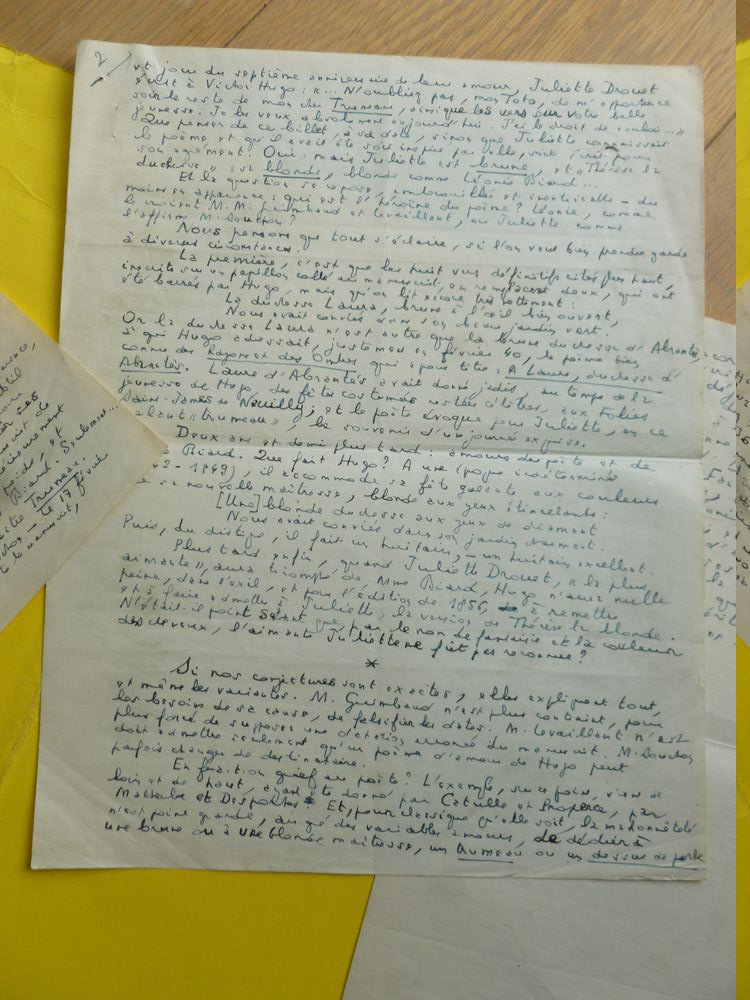 2
et jour du septième anniversaire de leur amour, Juliette Drouet
écrit à Victor Hugo : «... N'oubliez pas, mon Toto, de m'apporter ce
soir le reste de mon cher Trumeau, ainsi que les vers sur votre belle
jeunesse. Je les veux absolument aujourd'hui. J'ai le droit de vouloir... »
Que penser de ce billet, à sa date, sinon que Juliette connaissait
le poème et qu'il avait été soit inspiré par elle, soit écrit pour
son agrément ? Oui, mais Juliette est brune, et "Thérèse la
duchesse" est blonde, blonde comme Léonie Biard...
Et la question se repose, embrouillée et inextricable – du
moins en apparence : qui est l'héroïne du poème ? Léonie, comme
le croient M.M. Guimbaud et Levaillant, ou Juliette, comme
l'affirme M. Souchon ?
Nous pensons que tout s'éclaire, si l'on veut bien prendre garde
à diverses circonstances.
La première, c'est que les huit vers définitifs cités plus haut,
inscrits sur un papillon collé au manuscrit, en remplacent deux, qui ont
été barrés par Hugo, mais qu'on lit encore très nettement :
La duchesse Laura, brune à l'œil bien ouvert,
Nous avait conviés dans son beau jardin vert.
Or la duchesse Laura n'est autre que la brune duchesse d'Abrantès,
à qui Hugo adressait, justement en février 40, le poème bien
connu des Rayons et des Ombres qui a pour titre : A Laure, duchesse d'
Abrantès. Laure d'Abrantès avait donné jadis, au temps de la
jeunesse de Hugo, des fêtes costumées restées célèbres, aux Folies
Saint-James de Neuilly ; et le poète évoque pour Juliette, en ce
galant "trumeau", le souvenir d'une journée exquise.
Deux ans et demi plus tard : amours du poète et de
Biard. Que fait Hugo ? A une époque indéterminée
-1849), il accommode sa fête galante aux couleurs
de sa nouvelle maîtresse, blonde aux yeux étincelants :
[Une] blonde duchesse aux yeux de diamant
Nous avait conviés dans son jardin charmant.
Puis, du distique, il fait un huitain, – un huitain excellent.
Plus tard enfin, quand Juliette Drouet, "la plus
aimante", aura triomphé de Mme Biard, Hugo n'aura nulle
peine, dans l'exil, et pour l'édition de 1856, à remettre
et à faire admettre à Juliette la version de Thérèse la blonde.
N'était-il point séant que par le nom de fantaisie et la couleur
des cheveux, l'aimante Juliette ne fût pas reconnue ?
*
Si nos conjectures sont exactes, elles expliquent tout,
et même les variantes. M. Guimbaud n'est plus contraint, pour
les besoins de sa cause, de falsifier les dates. M. Levaillant n'est
plus forcé de supposer une datation erronée du manuscrit. M. Souchon
doit admettre seulement qu'un poème d'amour de Hugo peut
parfois changer de destinataire.
En fera-t-on grief au poète ? L'exemple, sur ce point, vient de
loin et de haut, ayant été donné par Catulle et Properce, par
Malherbe et Desportes. Et, pour classique qu'elle soit, la malhonnêteté
n'est point grande, au gré des variables amours, de dédier à
une brune ou à une blonde maîtresse, un trumeau ou un dessus de porte
Biard. Seulement...
Trumeau.
le 17 février
le manuscrit,